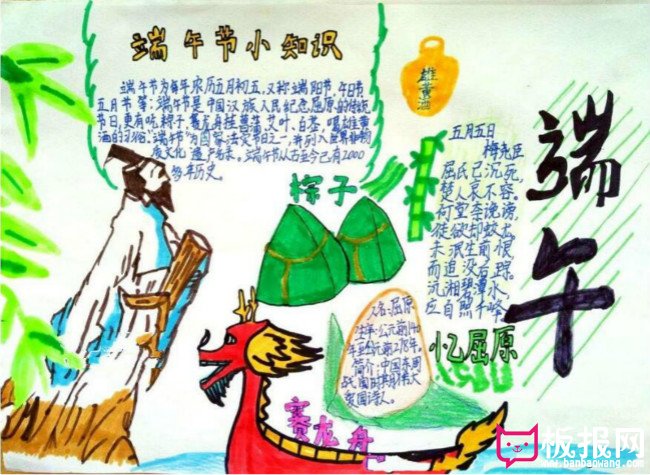 端午节小知识
端午节为每年农历五月初五,又称端阳节,午日节
五月节等;端午节是中国汉族人民纪念屈原的传统
节日,更有吃粽子,赛龙舟,挂菖蒲,艾叶,白芷,喝雄黄
酒的习俗。"端午节"为国家法定节日之一,并列入世界非物
质文化遗产名录。端午节从古至今已有2000
多年历史。
雄黄酒
端午
粽子
五月五日
梅尧臣
屈氏已沉死,
楚人哀不容。
何尝奈谗谤,
徒欲却蛟龙。
未泯生前恨
而追没后踪。
沅湘碧潭水,
应自照千峰
忆屈原
人名:屈原
生年:公元前340
年至公元前278年。
简介:中国东周
战国时期伟大
爱国诗人。
赛龙舟
板报网
www.banbaowang.com